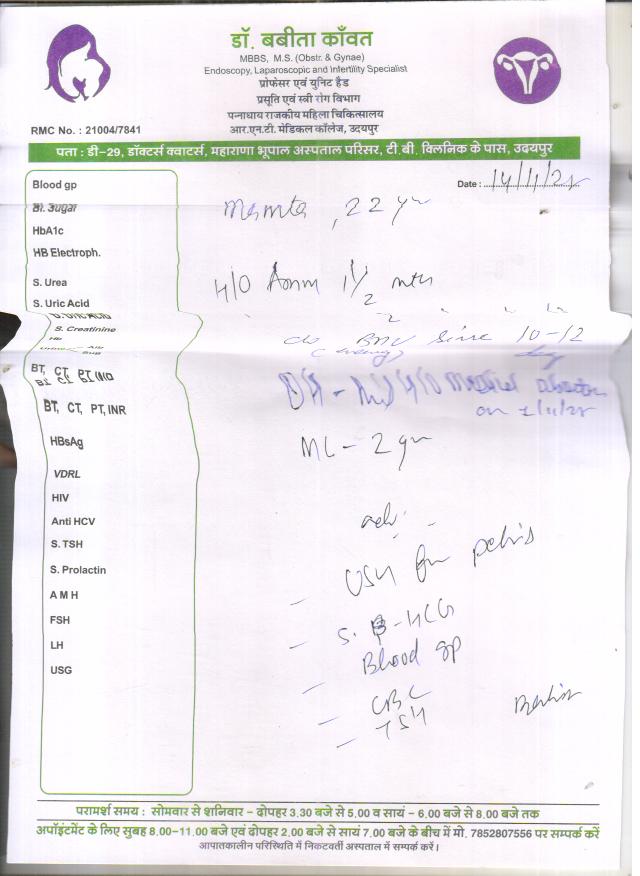 डॉ. बबीता काँवत
MBBS, M.S. (Obstr. & Gynae)
Endoscopy, Laparoscopic and Infertility Specialist
प्रोफेसर एवं युनिट हैड
प्रसूति एवं स्त्री रोग विभाग
पन्नाधाय राजकीय महिला चिकित्सालय
आर.एन.टी. मेडिकल कॉलेज, उदयपुर
RMC No. : 21004/7841
पता : डी-29, डॉक्टर्स क्वाटर्स, महाराणा भूपाल अस्पताल परिसर, टी.बी. क्लिनिक के पास, उदयपुर
Date :
Blood gp
Bl. Sugar
HbA1c
HB Electroph.
S. Urea
S. Uric Acid
S. Creatinine
BT, CT, PT, INR
BT, CT, PT, INR
HBsAg
VDRL
HIV
Anti HCV
S. TSH
S. Prolactin
A M H
FSH
LH
USG
Mamta, 22 yr
H/O 1 1/2 mths
since 10-12
ML - 2 yr
adv.
- USG for pelvis
- S. β-HCG
- Blood gp
- CBC
- TSH
परामर्श समय : सोमवार से शनिवार - दोपहर 3.30 बजे से 5.00 व सायं - 6.00 बजे से 8.00 बजे तक
अपॉइंटमेंट के लिए सुबह 8.00-11.00 बजे एवं दोपहर 2.00 बजे से सायं 7.00 बजे के बीच में मो. 7852807556 पर सम्पर्क करें
आपातकालीन परिस्थिति में निकटवर्ती अस्पताल में सम्पर्क करें।